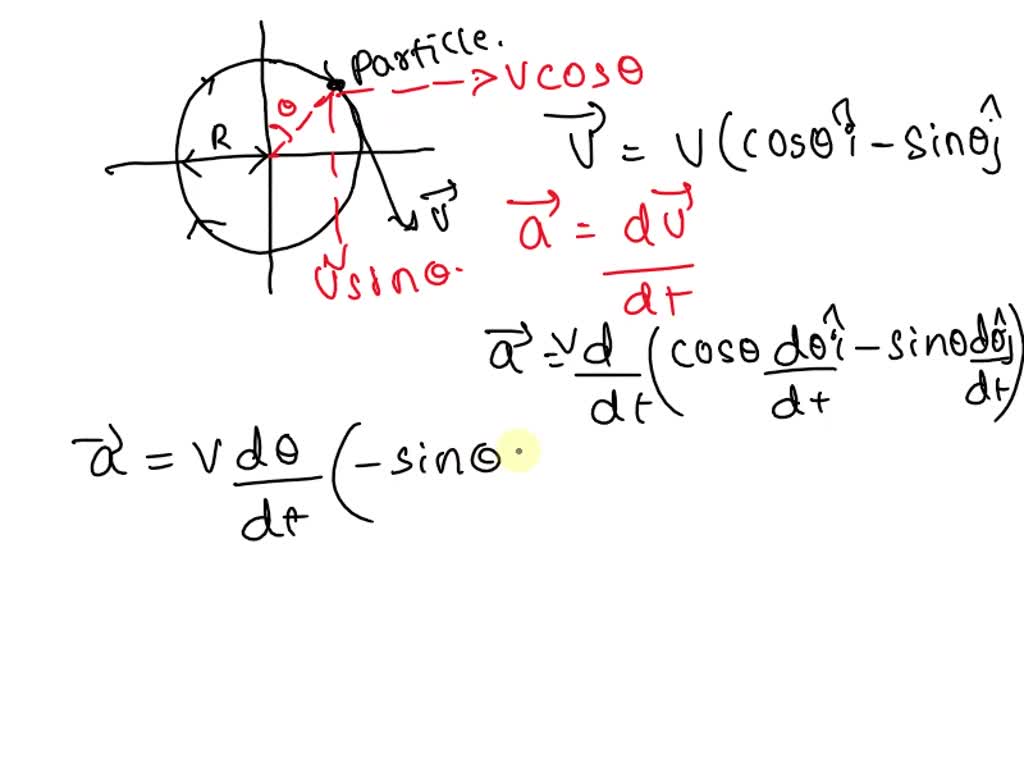 particle.
θ
v cosθ
R
v⃗
v sinθ.
v⃗ = v(cosθ î − sinθ ĵ
a⃗ = dv⃗/dt
a⃗ = v d/dt (cosθ dθ/dt î − sinθ dθ/dt ĵ)
a⃗ = v dθ/dt (−sinθ